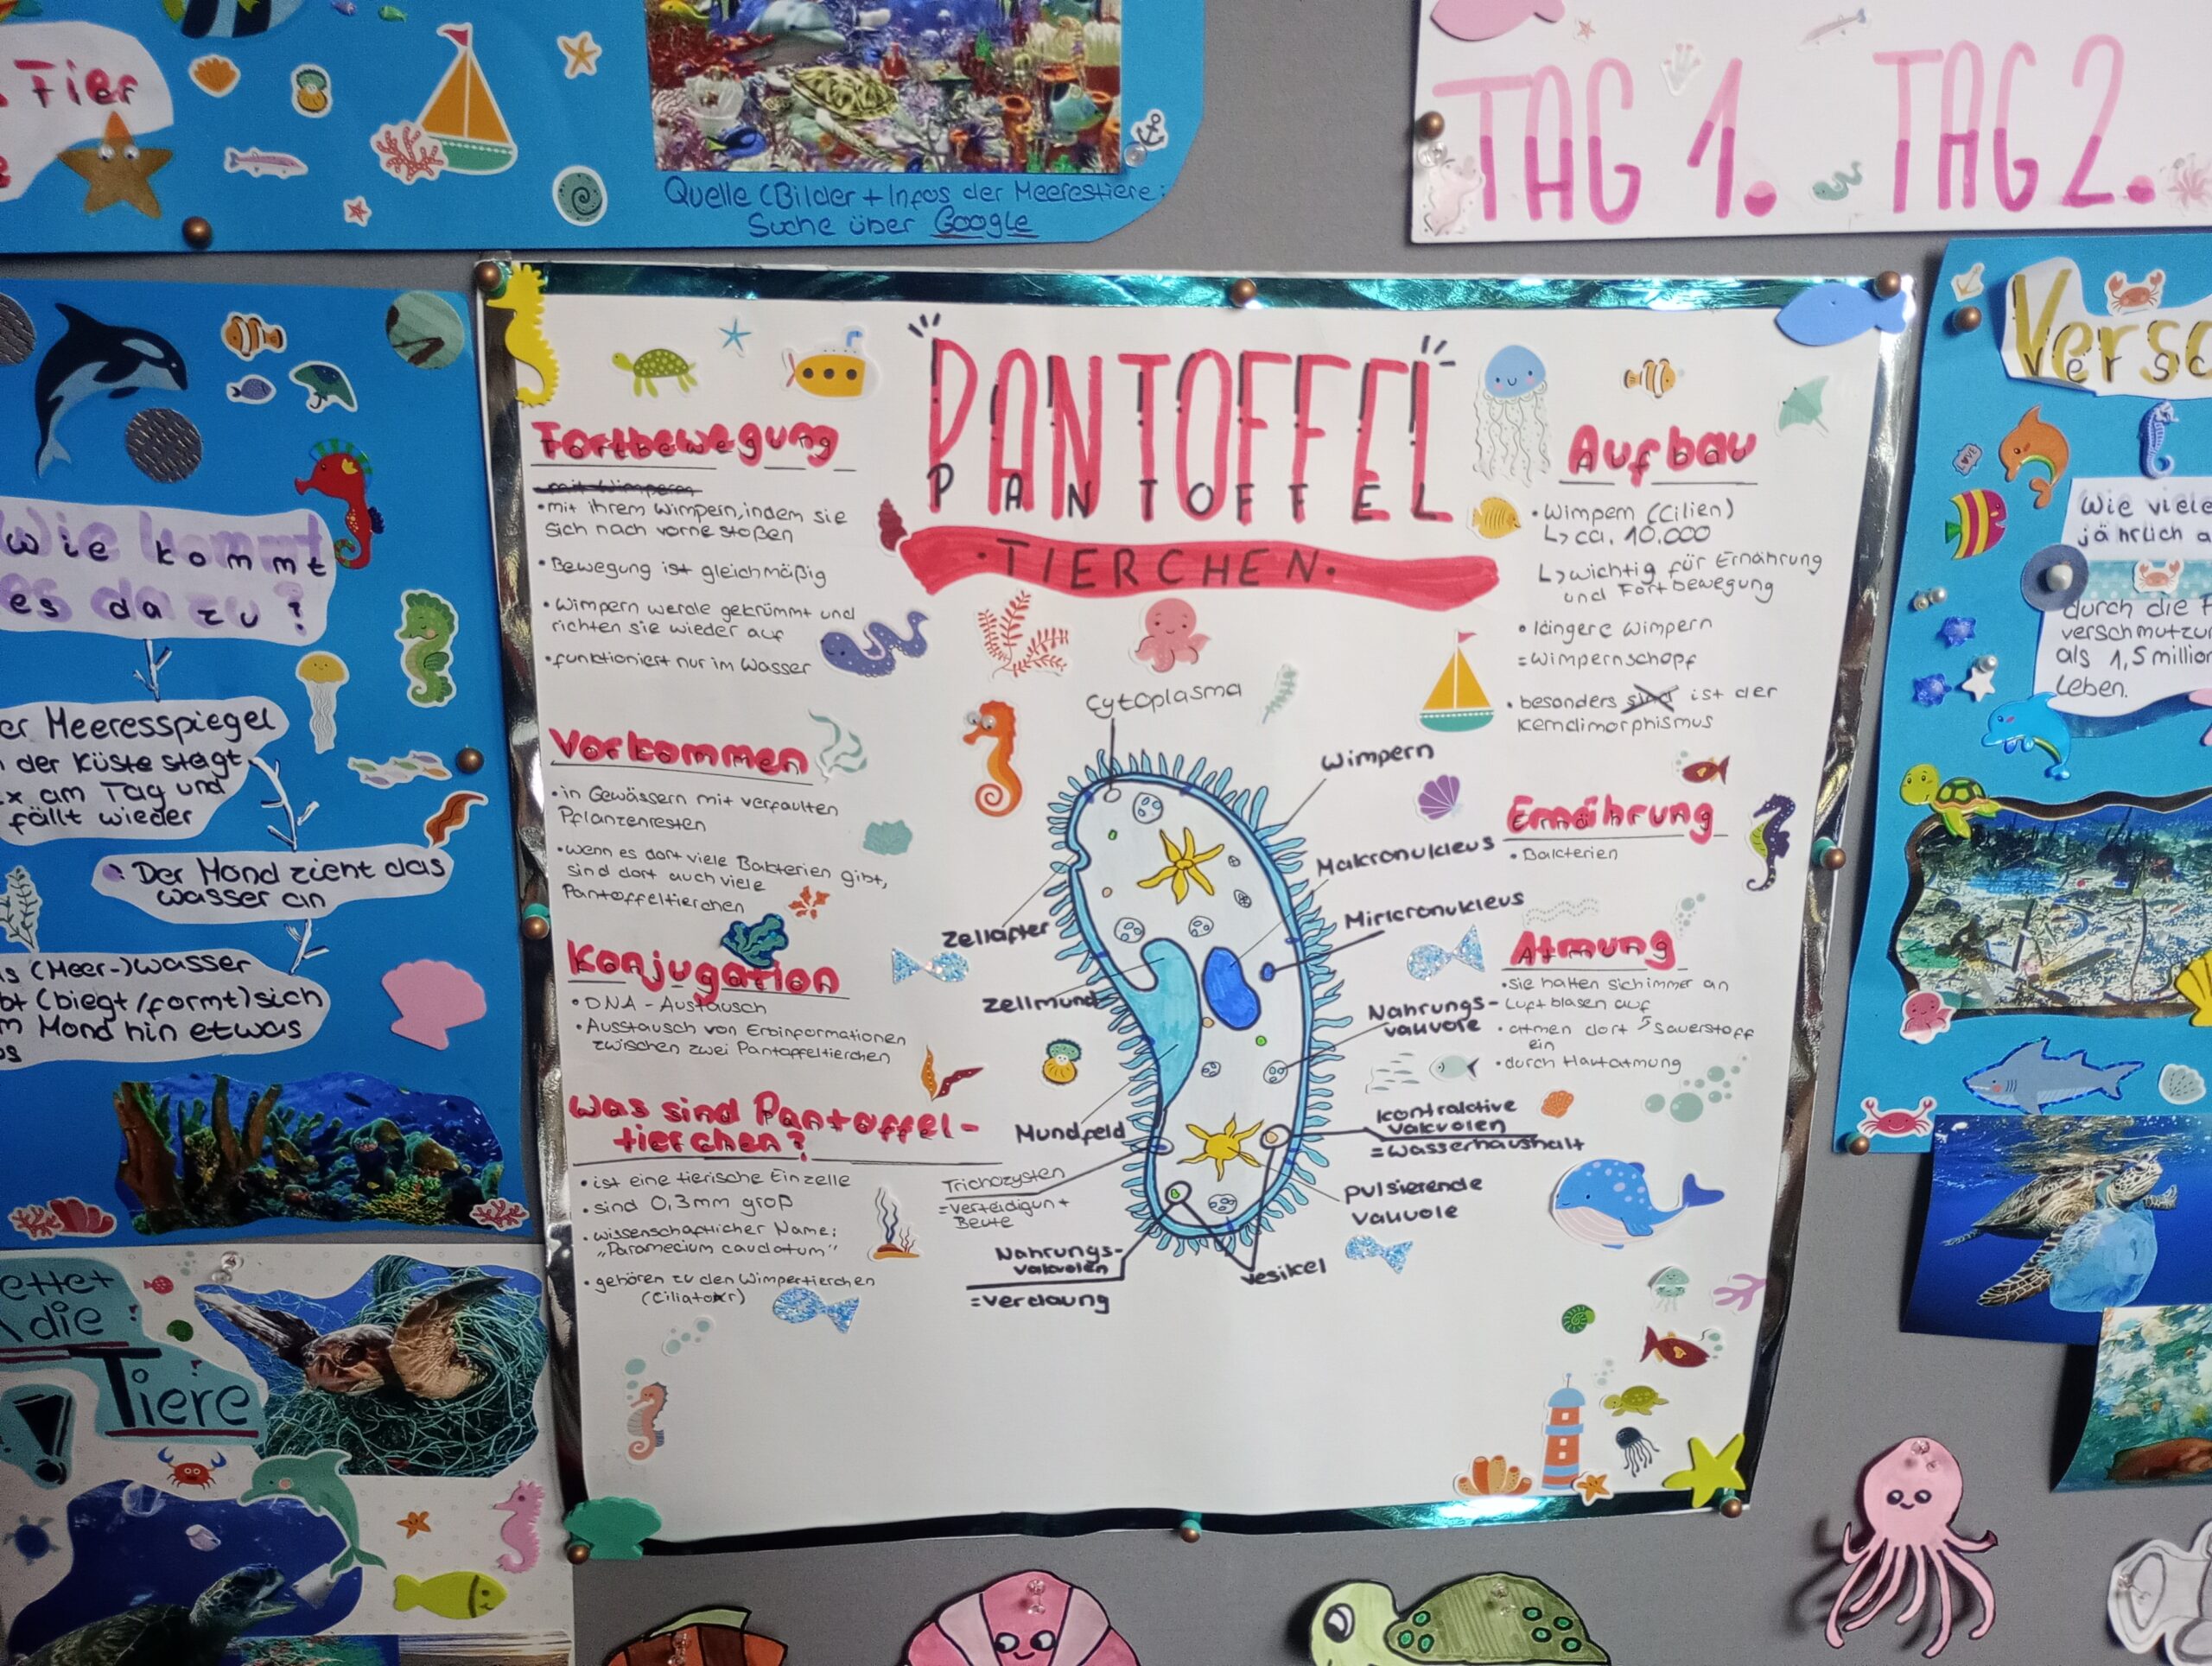 Tier
Quelle (Bilder + Infos der Meerestiere:
Suche über Google
TAG 1. TAG 2.
Wie kommt
es da zu?
er Meeresspiegel
der Küste steigt
x am Tag und
fällt wieder
Der Mond zieht das
wasser an
s (Meer-)wasser
bt (biegt/formt) sich
m Mond hin etwas
os
ettet
die
Tiere
!
PANTOFFEL
PANTOFFEL
·TIERCHEN·
Fortbewegung
mit Wimpern
•mit ihrem Wimpern, indem sie
sich nach vorne stoßen
•Bewegung ist gleichmäßig
•Wimpern werde gekrümmt und
richten sie wieder auf
•funktioniert nur im Wasser
Vorkommen
•in Gewässern mit verfaulten
Pflanzenresten
•wenn es dort viele Bakterien gibt,
sind dort auch viele
Pantoffeltierchen
Konjugation
•DNA-Austausch
•Ausstausch von Erbinformationen
zwischen zwei Pantoffeltierchen
Was sind Pantoffel-
tierchen?
•ist eine tierische Einzelle
•sind 0,3mm groß
•wissenschaftlicher Name:
„Paramecium caudatum"
•gehören zu den Wimpertierchen
Cytoplasma
Wimpern
Makronukleus
Mirkronukleus
Zellafter
Zellmund
Nahrungs-
vakuole
Mundfeld
Trichozysten
=Verteidigun +
Beute
kontraktive
Vakuolen
=Wasserhaushalt
pulsierende
Vakuole
Nahrungs-
vakuolen
=Verdauung
Vesikel
Aufbau
•Wimpern (Cilien)
↳ ca. 10.000
↳ wichtig für Ernährung
und Fortbewegung
•längere Wimpern
=Wimpernschopf
•besonders sind ist der
Kerndimorphismus
Ernährung
•Bakterien
Atmung
•sie halten sich immer an
Luftblasen auf
•atmen dort Sauerstoff
ein
•durch Hautatmung
Versc
versc
LOVE
Wie viele
jährlich a
durch die
verschmutzu
als 1,5 million
Leben.